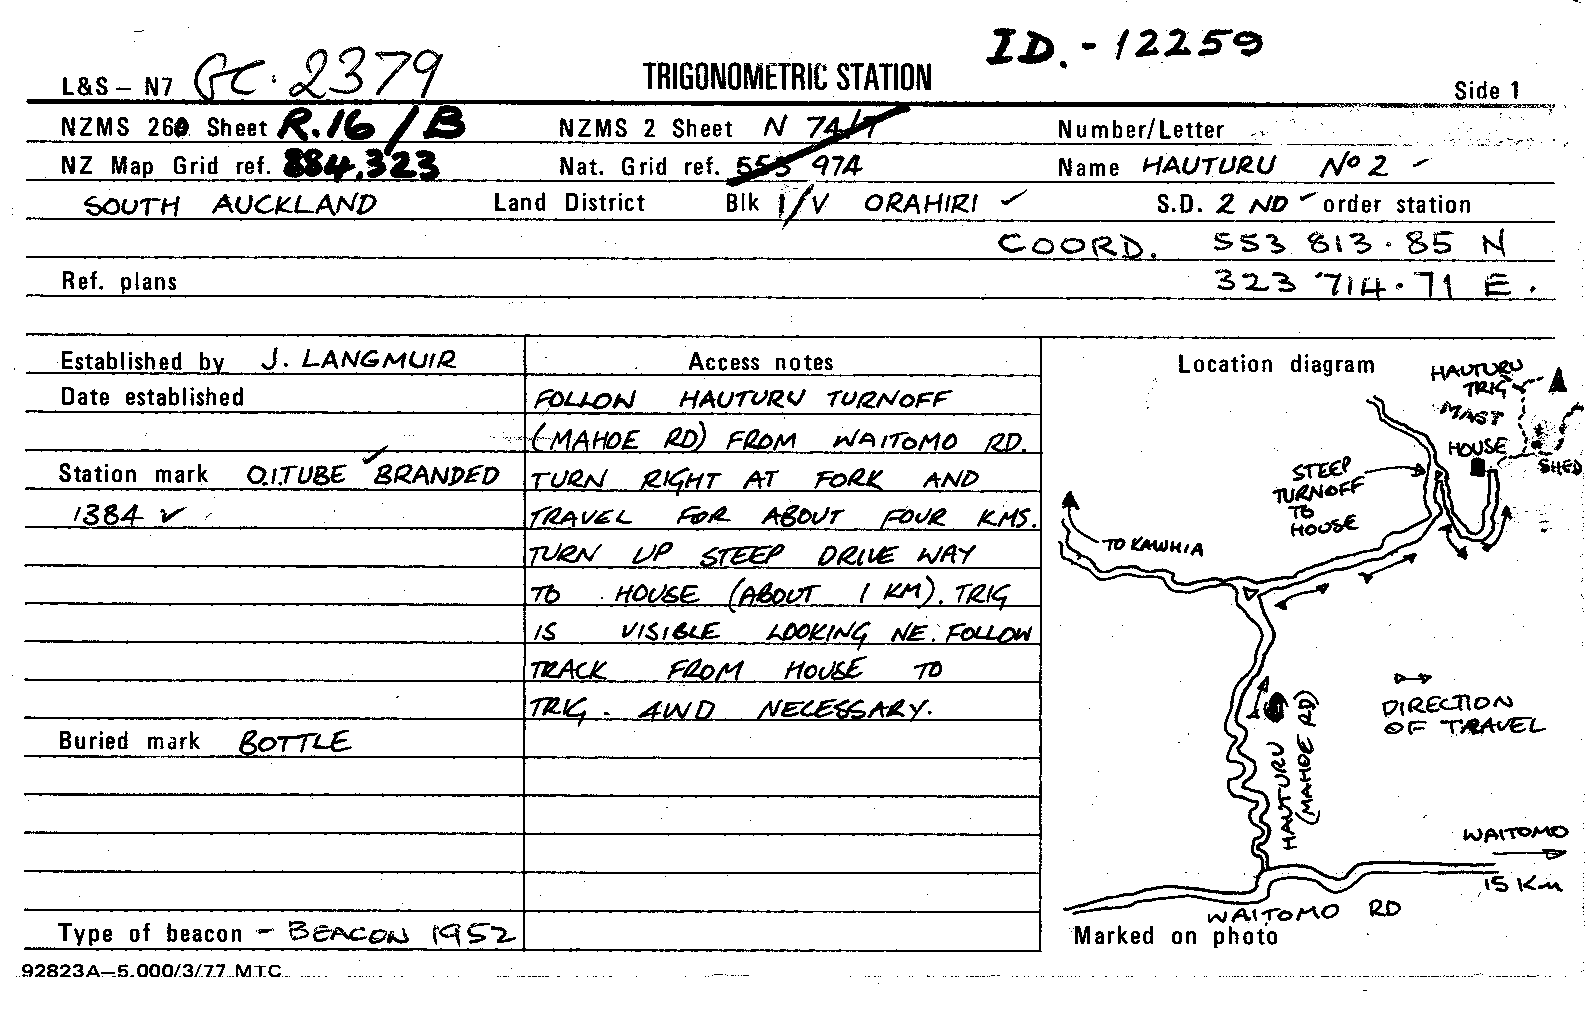 ID. - 12259
L&S – N7 GC. 2379 TRIGONOMETRIC STATION Side 1
NZMS 260 Sheet R.16/B NZMS 2 Sheet N 74/7 Number/Letter
NZ Map Grid ref. 884,323 Nat. Grid ref. 553 974 Name HAUTURU No 2
SOUTH AUCKLAND Land District Blk I/V ORAHIRI ✓ S.D. 2 ND order station
COORD. 553 813.85 N
Ref. plans 323 714.71 E.
Established by J. LANGMUIR
Date established
Station mark O.I.TUBE ✓ BRANDED
1384 ✓
Buried mark BOTTLE
Type of beacon – BEACON 1952
Access notes
FOLLOW HAUTURU TURNOFF
(MAHOE RD) FROM WAITOMO RD.
TURN RIGHT AT FORK AND
TRAVEL FOR ABOUT FOUR KMS.
TURN UP STEEP DRIVE WAY
TO HOUSE (ABOUT 1 KM). TRIG
IS VISIBLE LOOKING NE. FOLLOW
TRACK FROM HOUSE TO
TRIG. 4WD NECESSARY.
Location diagram
HAUTURU
TRIG
MAST
HOUSE
SHED
STEEP
TURNOFF
TO
HOUSE
TO KAWHIA
DIRECTION
OF TRAVEL
HAUTURU
(MAHOE RD)
WAITOMO
15 Km
WAITOMO RD
Marked on photo
92823A–5,000/3/77 MTC